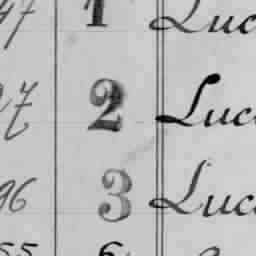 47 1 Luc
27 2 Luc
96 3 Luc
55 6